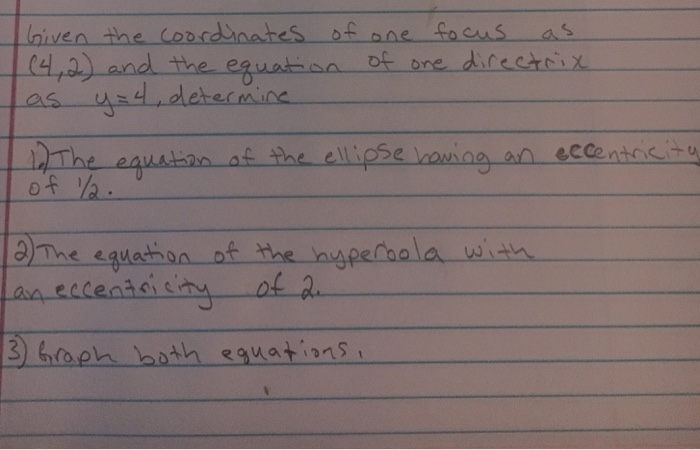 Given the coordinates of one focus as
(4,2) and the equation of one directrix
as y=4, determine
1.) The equation of the ellipse having an eccentricity
of 1/2.
2) The equation of the hyperbola with
an eccentricity of 2.
3) Graph both equations.